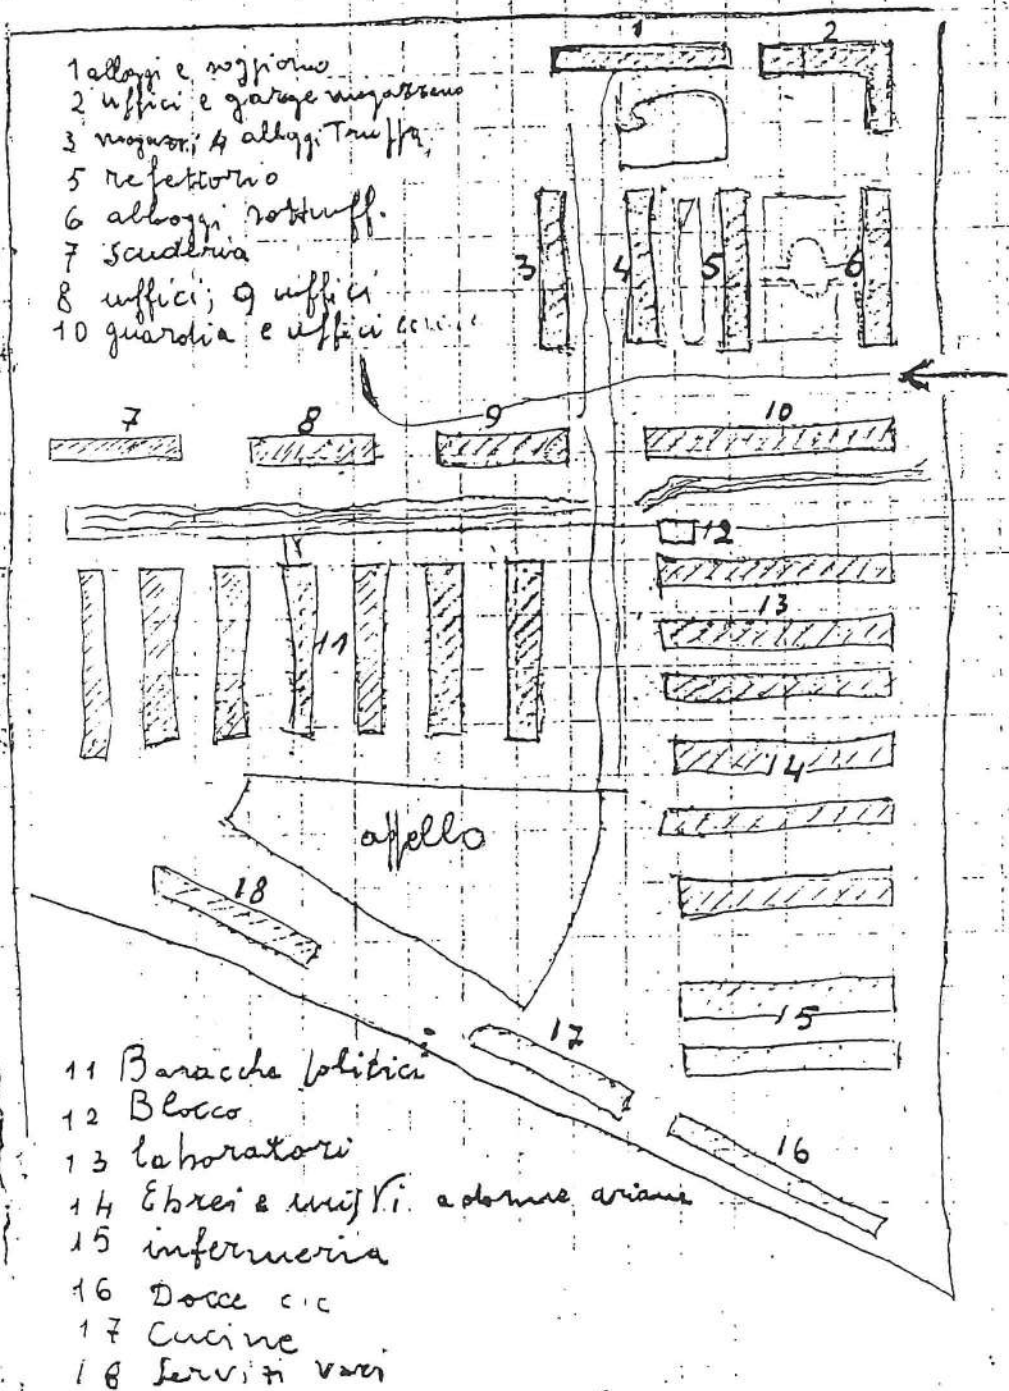 1 alloggi e soggiorno
2 uffici e garage magazzeno
3 magazzi; 4 alloggi Truffa,
5 refettorio
6 alloggi sottuff.
7 scuderia
8 uffici; 9 uffici
10 guardia e uffici
1
2
3
4
5
6
7
8
9
10
12
13
11
14
appello
18
15
17
16
11 Baracche politici
12 Blocco
13 laboratori
14 Ebrei e misti. e donne ariane
15 infermeria
16 Docce c.c
17 Cucine
18 Servizi vari